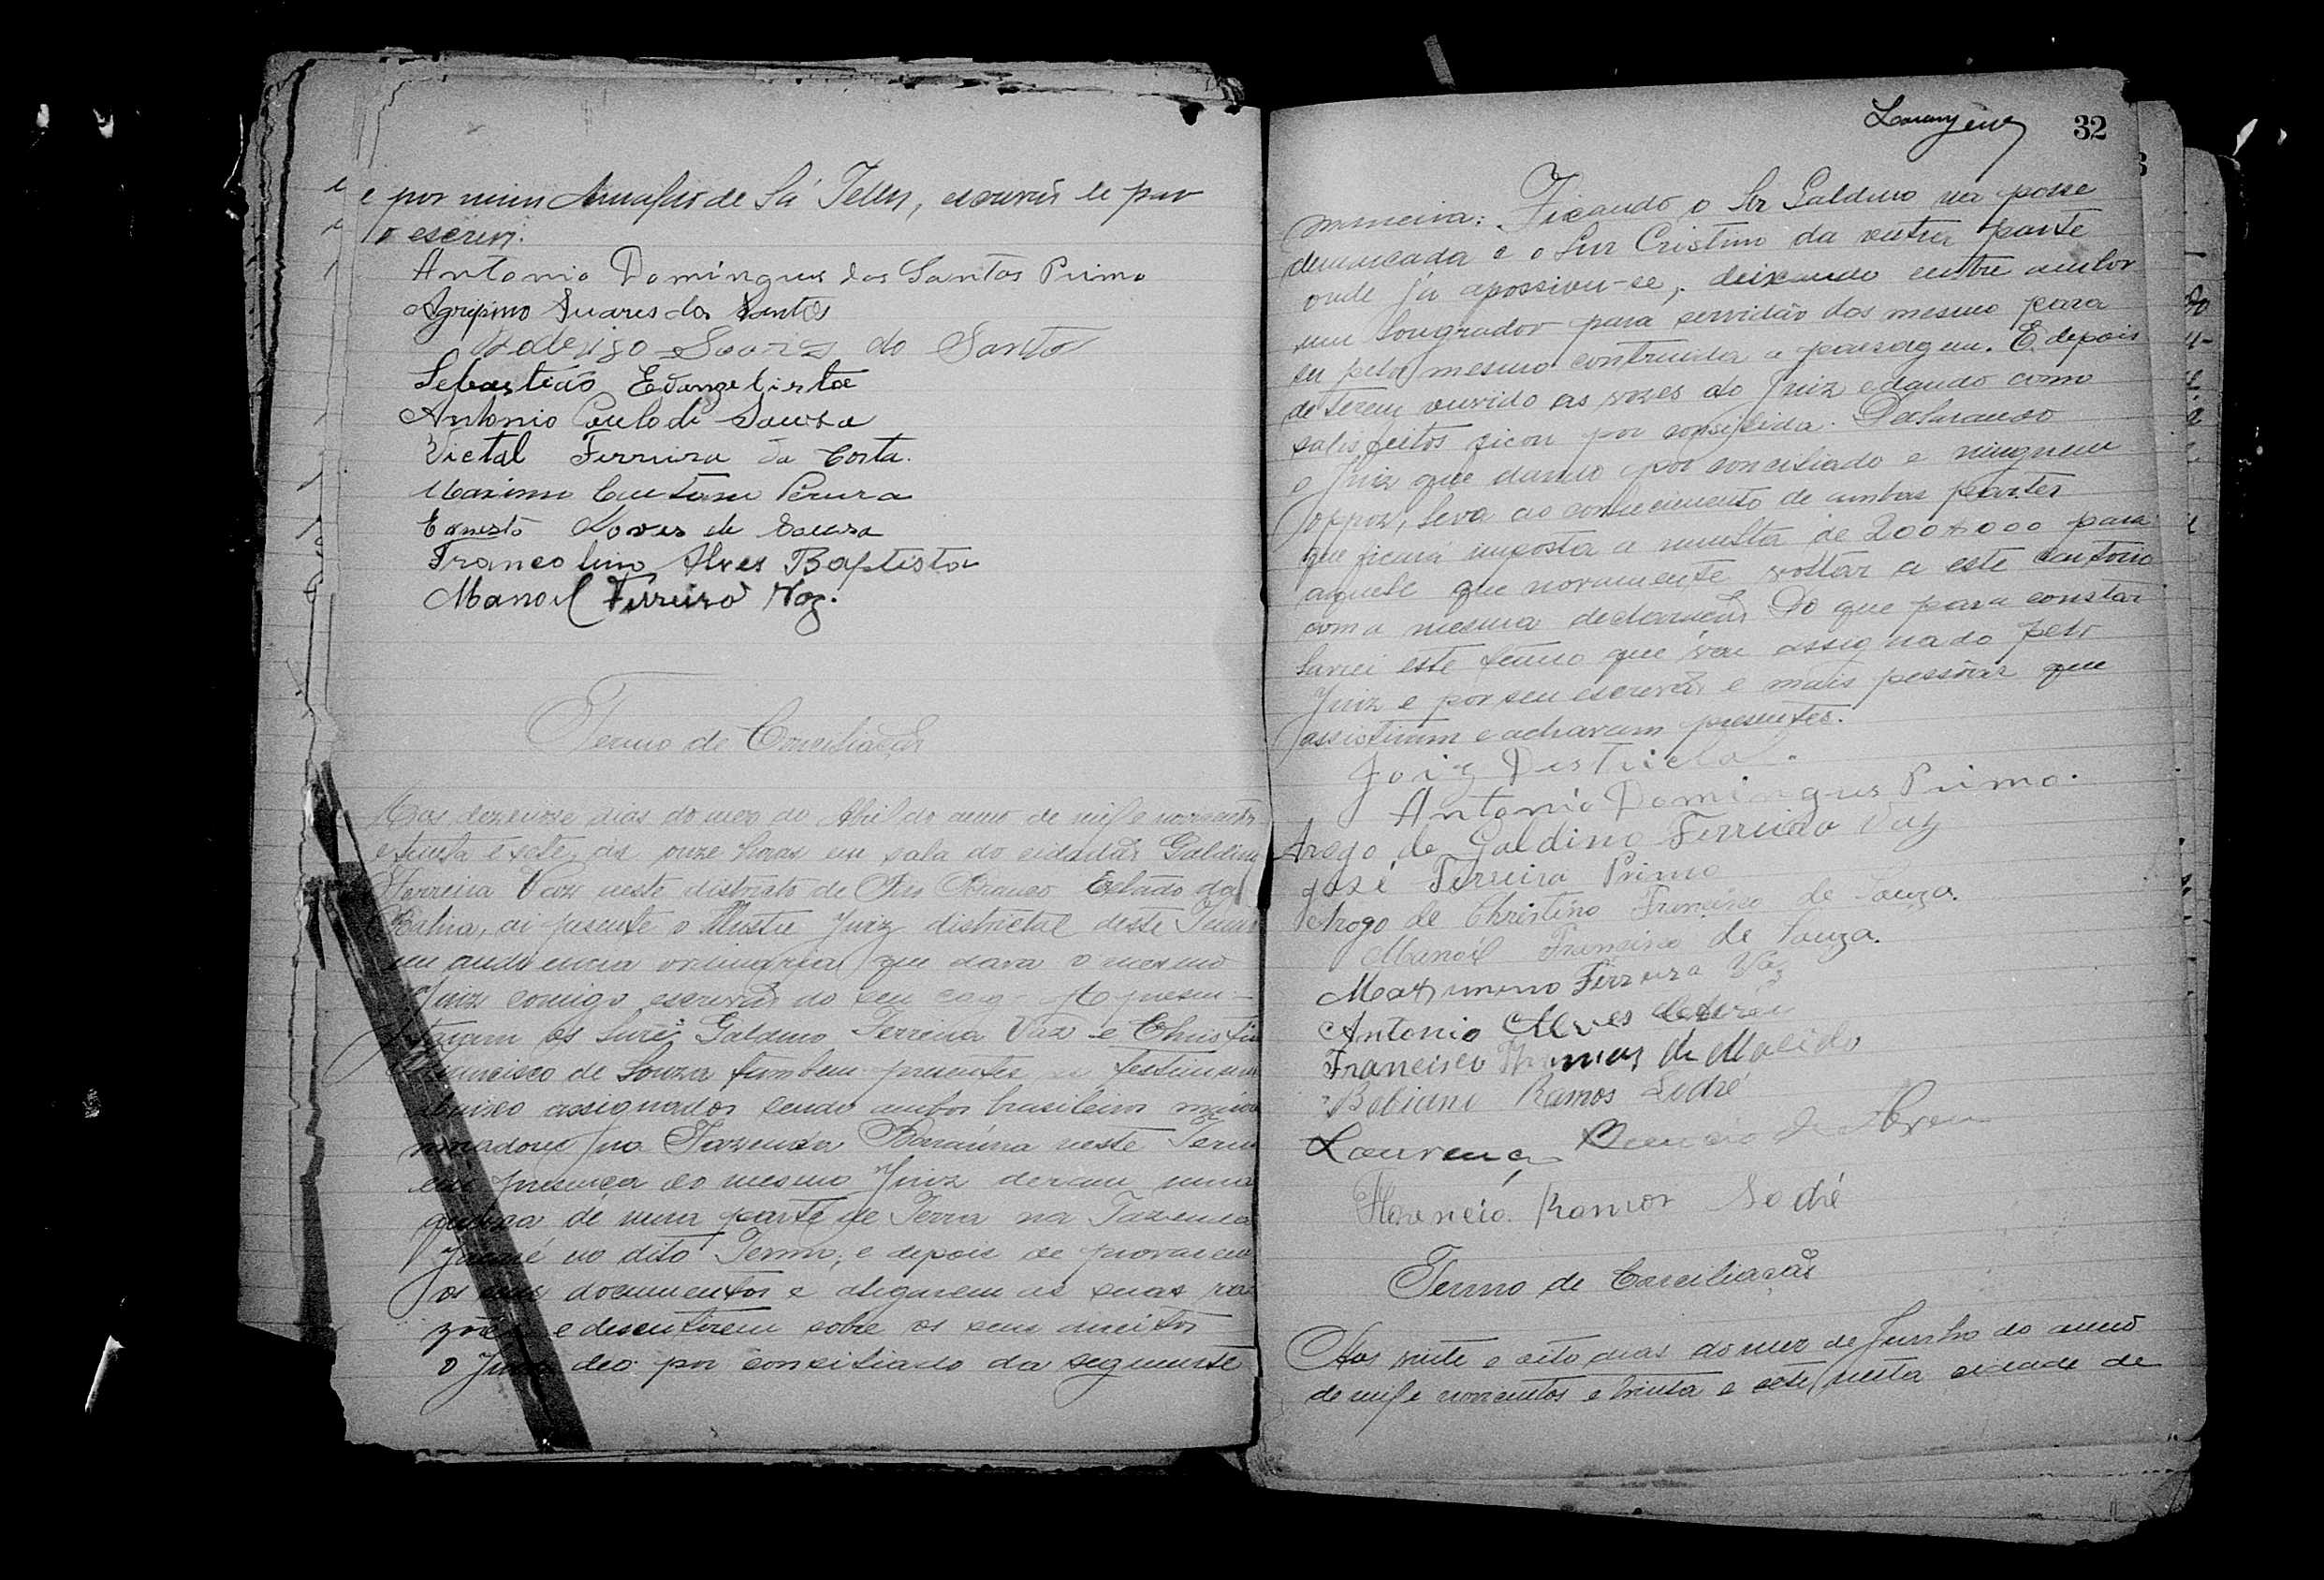 e por mim de Sá Telles, escrivão de paz
o escrevi.
Antonio Domingues dos Santos Primo
Agripino Suares dos Santos
Roderigo Soares do Santos
Sebastião Evangelista
Antonio Paulo de Souza
Victal Ferreira da Costa.
Maximo Caetano Pereira
Ernesto de Souza
Francolino Alves Baptista
Manoel Ferreira Vaz.
Termo de Conciliação
Aos dezenove dias do mez de Abril do anno de mil e novecentos
e trinta e sete, as onze horas em sala do cidadão Galdino
Ferreira Vaz neste districto de Rio Branco Estado da
Bahia, ai presente o Illustre Juiz districtal deste Termo
em audiencia ordinaria que dava o mesmo
Juiz comigo escrivão do seu cargo Apresen-
taram os Galdino Ferreira Vaz e Christino
Francisco de Souza tambem presentes testimunhas
abaixo assignados sendo ambos brasileiros
moradores na Fazenda Barauna neste Termo
em presença do mesmo Juiz deram uma
de uma parte de Terra na Fazenda
no dito Termo, e depois de provarem
os seus documentos e alegarem as suas ra-
zões e descutirem sobre os seus direitos
o Juiz deo por conciliado da seguinte
32
maneira: Ficando o Sr Galdino na posse
demarcada e o Snr Cristino da outra parte
onde já apossiou-se, deixando entre ambos
um para servidão dos mesmo para
ser pelos mesmo construida a passagem. E depois
de terem ouvido as vozes do Juiz e dando como
satisfeitos ficou por Declarando
o Juiz que dando por conciliado e ninguem
oppoz, leva ao conhecimento de ambas partes
que ficará imposta a multa de 200$000 para
aquele que novamente voltar a este cartorio
com a mesma declaração Do que para constar
lavrei este termo que vai assignado pelo
Juiz e por seu escrivão e mais pessôas que
assistiram e acharam presentes.
Joiz Destrictal.
Antonio Domingues Primo.
Arogo de Galdino Ferreira Vaz
José Ferreira Primo
Arogo de Christino Francisco de Souza.
Manoel Francisco de Souza.
Maximino Ferreira Vaz
Antonio Alves
Francisco de Macido
Bibiano Ramos Sodré
de Abreu
Florencio Ramos Sodré
Termo de Conciliação
Aos vinte e oito dias do mez de Junho do anno
de mil e novecentos e trinta e sete nesta cidade de